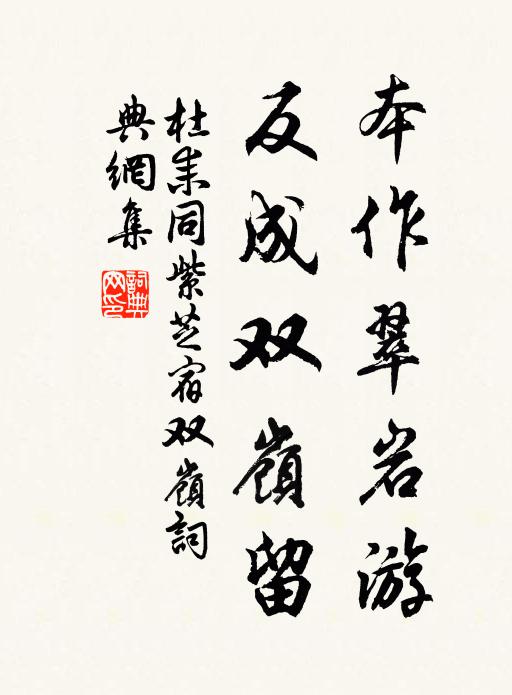 本作翠岩游
反成双嶺留
杜耒同紫芝宿双嶺詞
典網集
詞典
网印